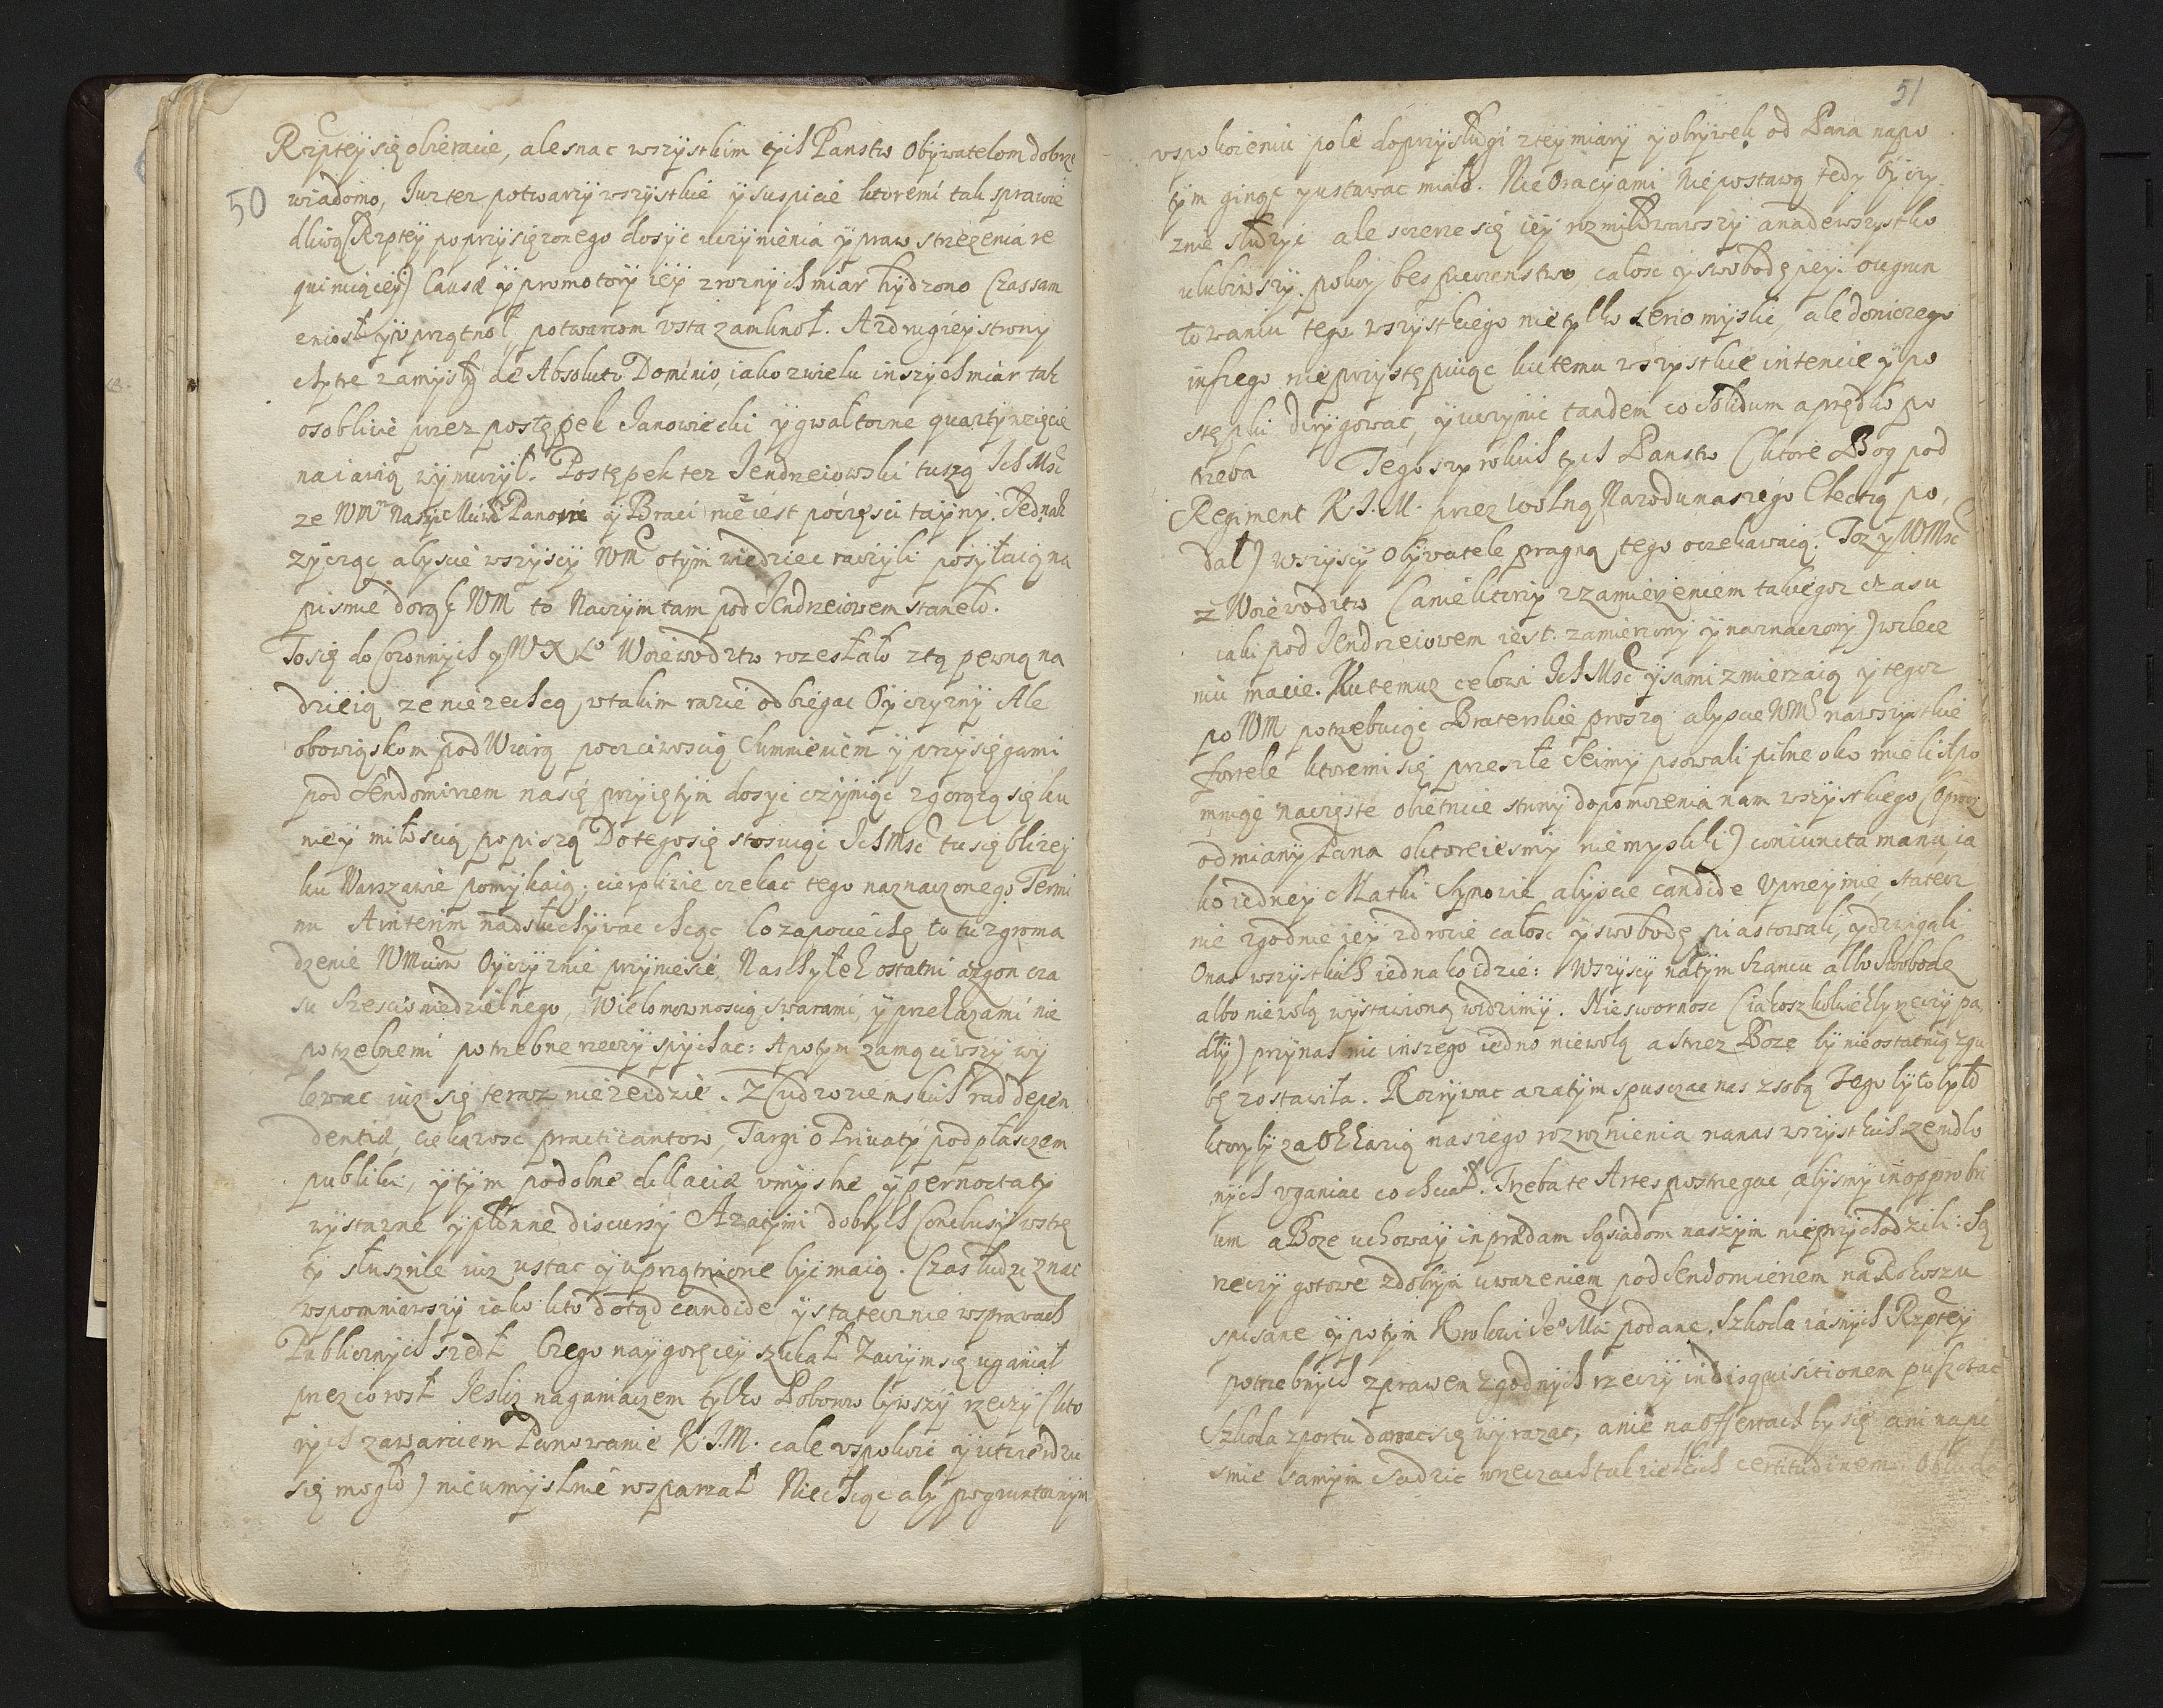 50
Rzptey się obieracie, ale snac wszystkim tych Panstw Obywatelom dobrze
wiadomo, Iuz tez potwarzy wszystkie y suspicie ktoremi tak sprawie
dliwą (Rzptey poprzysięzonego dosyc uczynienia y praw strzezenia re
quiruiącey) Causæ y promotory iey z roznych miar hydzono Czas sam
zniosł y uprzątnoł, potwarcom usta zamknoł. A z drugiey strony
chytre zamysły de Absoluto Dominio, iako z wielu inszych miar tak
osobliwie przez postępek Janowiecki y gwałtowne quarty wzięcie
na iawią wymurzył. Postępek tez Jendrzeiowski tuszą Ich Msc
ze WMm Naszem Miłem Panom y Braci nie iest po części tayny. Jednak
zycząc abyscie wszyscy WM o tym wiedziec raczyli posyłaią na
pismie do rąk WM to Na czym tam pod Jendrzeiowem staneło.
To się do Coronnych y W X Lo Woiewodztw rozesłało z tą pewną na
dzieią ze nie zechcą w takim razie odbiegac Oyczyzny Ale
obowiąskom pod Wiarą poczciwoscią Sumnieniem y przysięgami
pod Sendomirzem na się przyiętym dosyc czyniąc z gorącą się ku
niey miłoscią popiszą Do tego się stosuiąc Ich Msc tu się blizey
ku Warszawie pomykaią; cierpliwie czekac tego naznaczonego Termi
nu A interim nadsłuchywac chcąc Co za pociechę tu tu zgroma
dzenie WMciow Oyczyznie przyniesie Na schyłek ostatni azgon cza
su szescioniedzielnego, Wielomownoscią swarami, y przekazami nie
potrzebnemi potrzebne rzeczy spychac: A potym zamąciwszy wy
lewac iuz się teraz nie zeidzie. Z Cudzoziemskich rad depen
dentiæ, ciekawosc practicantow, Targi o Privaty pod płasczem
publiki, y tym podobne dillaciæ umyslne y pernoctaty
wystawne y płonne discursy A zatymi dobrych Conclusy wstrę
ty słusznie iuz ustac y uprzątnione byc maią. Czas ludzi znac
wspomniawszy iako kto dotąd candide y statecznie w sprawach
Publicznych szedł Czego naygoręcey szukał Za czym się uganiał
przez co rosł Jesliz naganiaczem tylko Poborow bywszy rzeczy (kto
rych zawarciem Panowanie K.J.M. cale uspokoic y utwierdzic
się mogło) nie umyslnie rosparzał Nie chcąc aby po gruntownym
51
uspokoieniu pole do przysługi z tey miary y obrywek od Pana napo
tym ginąc y ustawac miało. Nie Oracyami Nie postawą tedy Oyczy
znie słuzyc ale szczerze się iey rozmiłowawszy a nadewszystko
ulubiwszy, pokoy bespieczenstwo, całosc y swobodę iey: o ugrun
towaniu tego wszystkiego nie tylko serio myslic, ale do niczego
inszego nie przystępuiąc ku temu wszystkie intencie y po
stępki dirygowac, y uczynic tandem co solidum a prędko po
trzeba Tego szyrokich tych Panstw (ktore Bog pod
Regiment K.J.M. przez wolną Narodu naszego Electią po,
dał) wszyscy Obywatele pragną tego oczekawaią. Toz y WMsc
z Woiewodztw (a niektorzy z zamierzeniem takiegoz czasu
iaki pod Jendrzeiowem iest. zamierzony y naznaczony) w zlece
niu macie. Ku temuz celowi Ich Msc y sami zmierzaią y tegoz
po WM potrzebuiąc Braterskie proszą abyscie WM na wszystkie
fortele ktoremi się przeszłe Seimy psowali pilne oko mieli A po
mniąc na częste obietnice strony dopomozenia nam wszystkiego (oprocz
odmiany Pana o ktoreiesmy nie myslili) coniuncta manu, ia
ko iedney Matki Synowie abyscie candide Uprzeymie, statecz
nie zgodnie iey zdrowie całosc y swobodę piastowali, y dzwigali
O nas wszystkich iednako idzie: Wszyscy na tym szancu albo Swobodę
albo niewolą wystawioną widzimy. Nieswornosc (iakoszkolwiekby rzeczy pa,
dły) przy nas nic inszego iedno niewolą a strzez Boze by nie ostatnią zgu
bę zostawiła. Rozrywac a zatym spuszczac nas z sobą Tego by to było
ktoryby za okkazią naszego rozroznienia na nas wszystkich zemdlo
nych uganiac co chciał. Trzeba te Artes postrzegac, abysmy in opprobri
um a Boze uchoway in prædam sąsiadom naszym nieprzychodzili: Są
rzeczy gotowe z dobrym uwazeniem pod Sendomirzem na Rokoszu
spisane y potym Krolowi Jeo Mci podane. Szkoda iasnych Rzptey
potrzebnych z prawem zgodnych rzeczy in disquisitionem puszczac
Szkoda z portu dawac się wyrazac, a nie na Offertach by się ani na pi
smie samym sadzic w rzeczach tak wielkich certitudinem